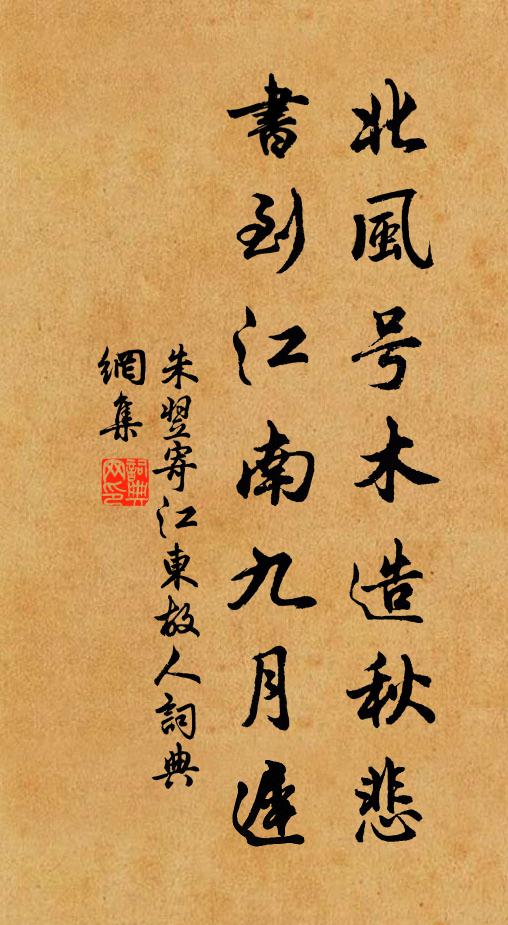 北風号木造秋悲
書到江南九月遲
朱翌寄江東故人詞典
網集
詞典
网印